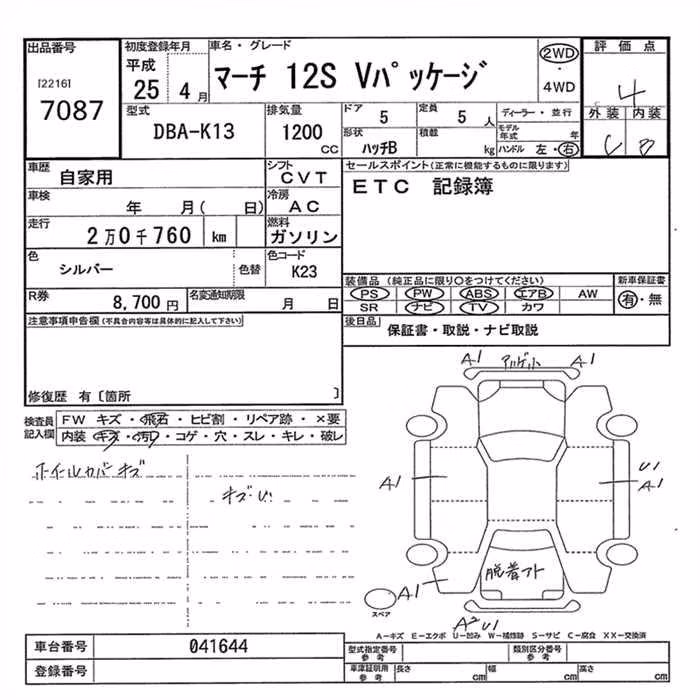 出品番号 初度登録年月 車名・グレード 評価点
[2216] 7087 平成 25 4月 マーチ 12S Vパッケージ 2WD ・ 4WD 4
型式 排気量 ドア 5 定員 5人 ディーラー・並行 外装 内装
DBA-K13 1200 CC 形状 ハッチB 積載 kg モデル年式 年 ハンドル 左・右 C B
車歴 自家用 シフト CVT セールスポイント(正常に機能するものに限ります)
車検 年 月( 日) 冷房 AC ETC 記録簿
走行 2万0千760 km 燃料 ガソリン
色 シルバー 色替 色コード K23 装備品(純正品に限り○をつけてください) 新車保証書
R券 8,700円 名変通知期限 月 日 PS PW ABS エアB AW 有・無
SR ナビ TV カワ
注意事項申告欄(不具合内容等は具体的に記入して下さい) 後日品 保証書・取説・ナビ取説
修復歴 有〔箇所 〕
A1 A1
検査員記入欄 FW キズ・飛石・ヒビ割・リペア跡・×要
内装 キズ・汚レ・コゲ・穴・スレ・キレ・破レ
ホイルカバーキズ
A1 U1 A1
キズ・U
脱着アト
A1
スペア
A2 U1
A-キズ E-エクボ U-凹み W-補修跡 S-サビ C-腐食 XX-交換済
車台番号 041644 型式指定番号 参考 類別区分番号 参考
登録番号 車庫証明用 参考 長さ cm 幅 cm 高さ cm